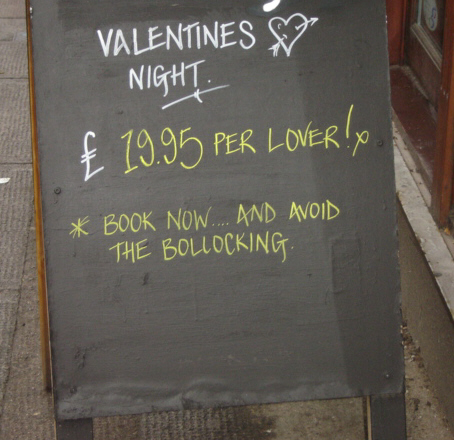 VALENTINES
NIGHT.
£ 19.95 PER LOVER! x
* BOOK NOW.... AND AVOID
THE BOLLOCKING.